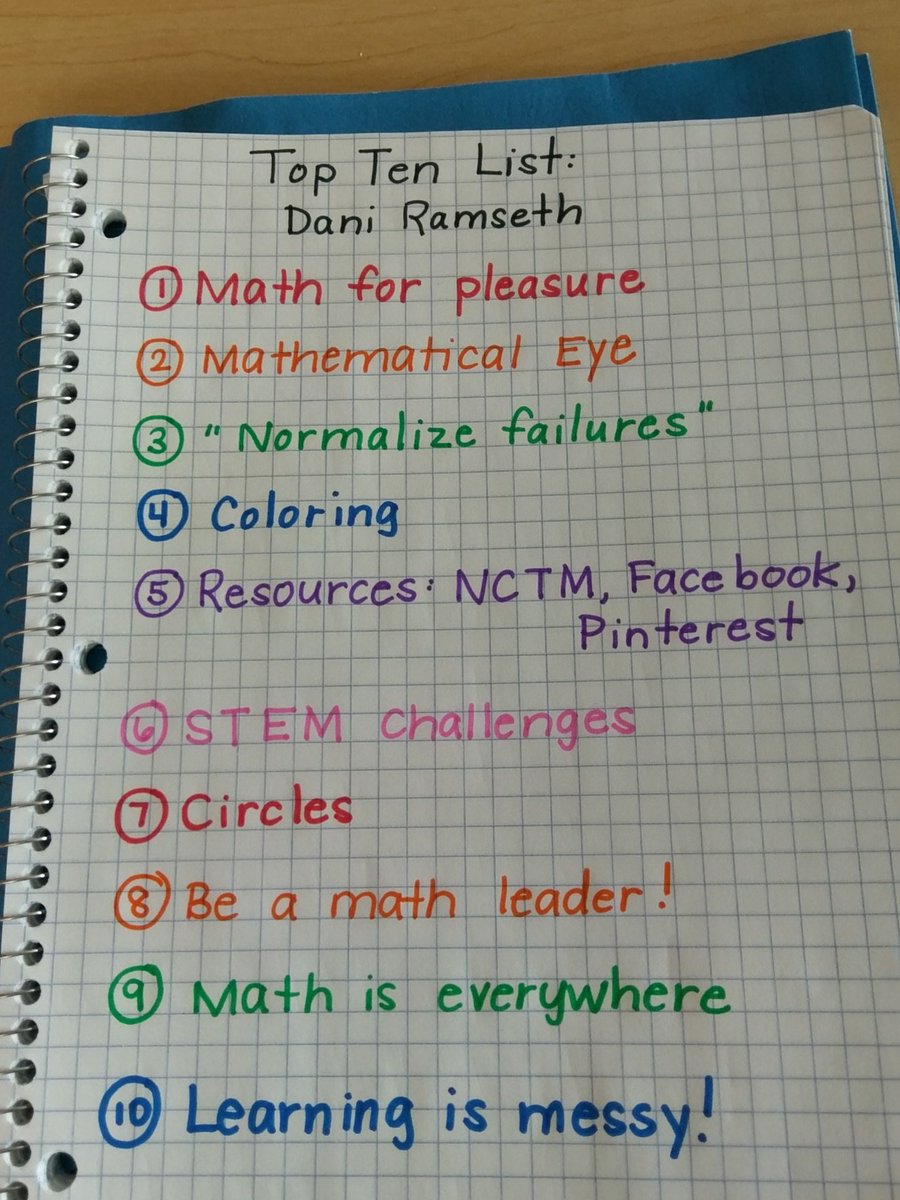 Top Ten List:
Dani Ramseth
① Math for pleasure
② Mathematical Eye
③ "Normalize failures"
④ Coloring
⑤ Resources: NCTM, Facebook,
Pinterest
⑥ STEM Challenges
⑦ Circles
⑧ Be a math leader!
⑨ Math is everywhere
⑩ Learning is messy!